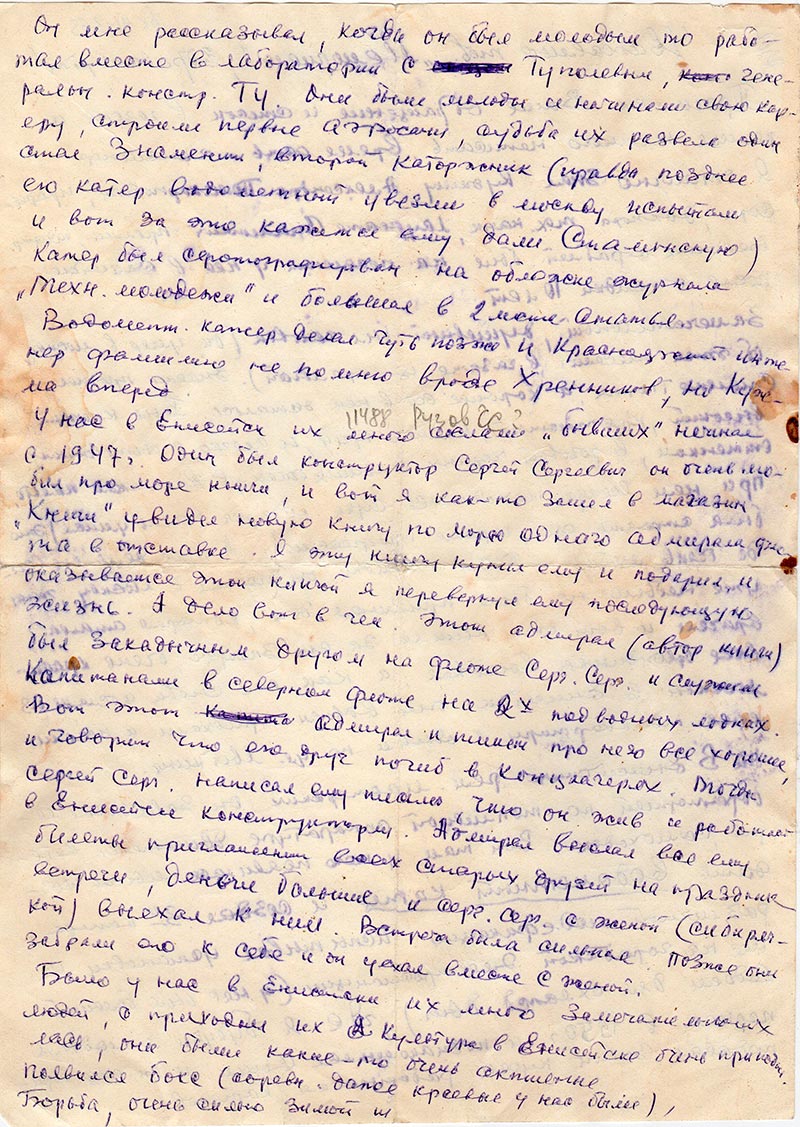 Он мне рассказывал, когда он был молодым то рабо-
тал вместе в лаборатории с Туполевым, гене-
ральн. констр. ТУ. Они были молоды и начинали свою кар-
еру, строили первые аэросани, судьба их развела один
стал Знаменит, второй каторжник (правда позднее
его катер водометный увезли в москву испытали
и вот за это кажется ему дали Сталинскую)
Катер был сфотографирован на обложке журнала
„Техн. молодежи" и большая в 2 листа статья.
Водометн. катер делал чуть позже и Красноярский инже-
нер фамилию не помню вроде Хренников, но Куж-
ма вперед
У нас в Енисейск их много "бывших" начиная
с 1947г. Один был конструктор Сергей Сергеевич он очень лю-
бил про море книги, и вот я как-то зашел в магазин
„Книги" увидел новую книгу по морю одного адмирала фло-
та в отставке. Я эту книгу купил ему и подарил, и
оказывается этой книгой я перевернул ему последующую
жизнь. А дело вот в чем. Этот адмирал (автор книги)
был закадычным другом на флоте Серг. Серг. и служили
Капитанами в северном флоте на 2х подводных лодках.
Вот этот Адмирал и пишет про него все хорошее,
и говорит что его друг погиб в Концлагерях. Тогда
Сергей Серг. написал ему письмо, что он жив и работает
в Енисейске конструктором. Адмирал выслал все ему
билеты приглашения всех старых друзей на праздник
встречи, деньги большие и серг. серг. с женой (сибиряч-
кой) выехал к ним. Встреча была сильная. Позже они
забрали его к себе и он уехал вместе с женой.
Было у нас в Енисейске их много замечательных
людей, с приходом их культура в Енисейске очень приподня-
лась, они были какие-то очень
Появился бокс (соревн. даже краевые у нас были),
Борьба, очень сильно зимой